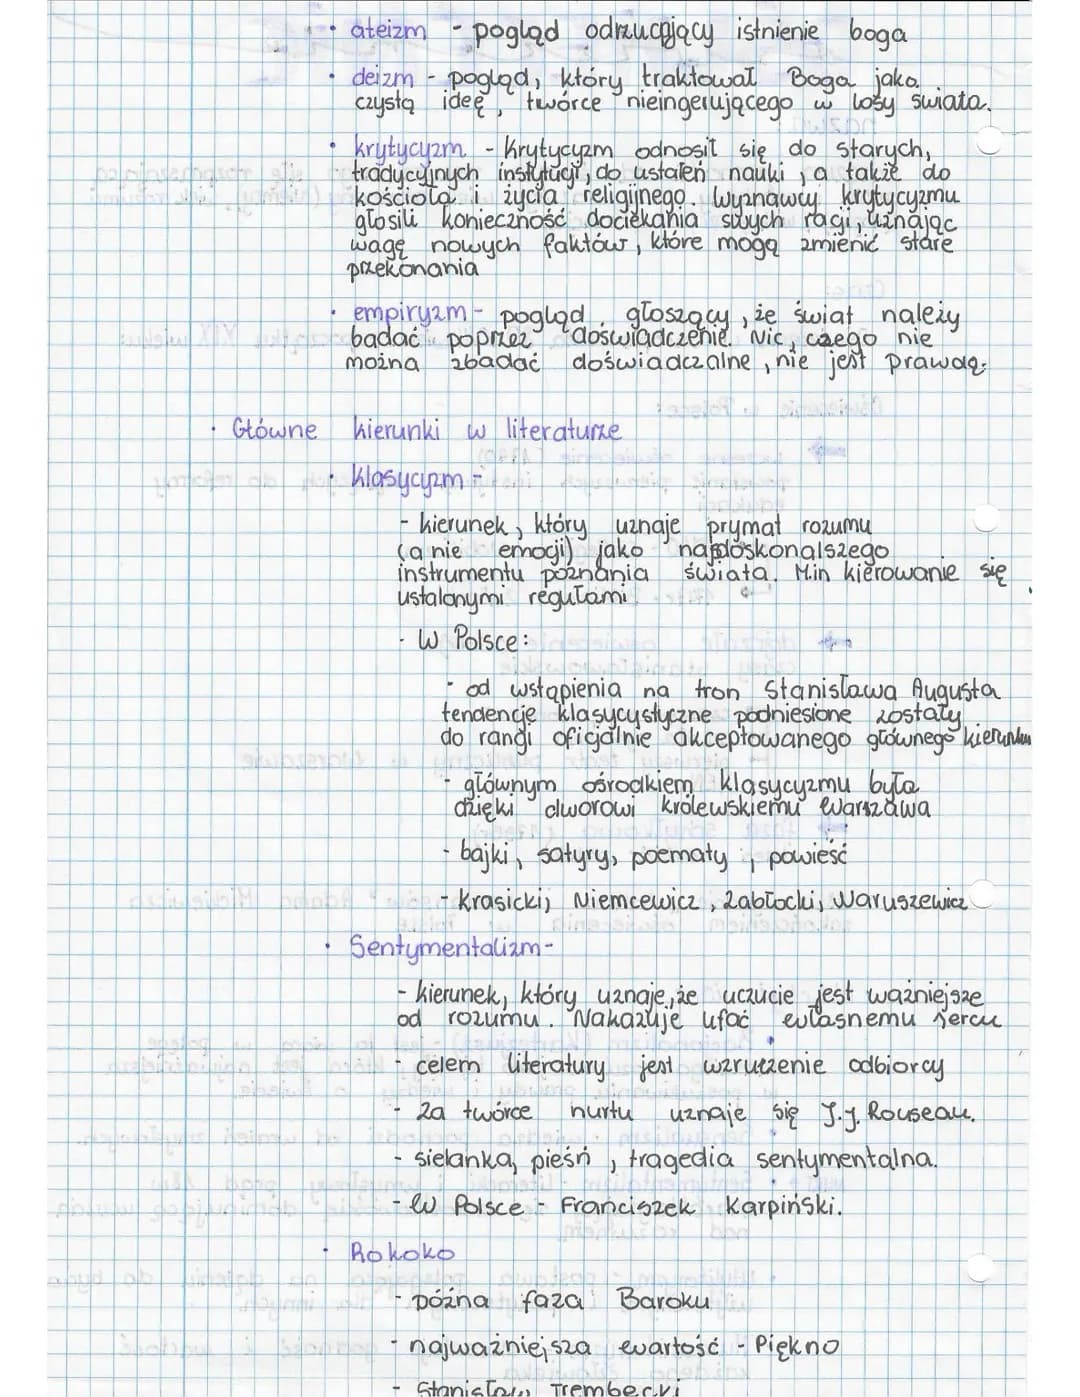 • ateizm - pogląd odrzucający istnienie boga
• deizm - pogląd, który traktował Boga jako
czystą ideę, twórce nieingerującego w losy świata.
• krytycyzm - Krytycyzm odnosił się do starych,
tradycyjnych instytucji, do ustaleń nauki, a także do
kościoła i życia religijnego. Wyznawcy krytycyzmu
głosili konieczność dociekania swych racji, uznając
wagę nowych faktów, które mogą zmienić stare
przekonania
• empiryzm - pogląd głoszący, że świat należy
badać poprzez doświadczenie. Nic, czego nie
można zbadać doświadczalne, nie jest prawdą.
• Główne kierunki w literaturze
• klasycyzm -
- kierunek, który uznaje prymat rozumu
(a nie emocji) jako najdoskonalszego
instrumentu poznania świata. M.in kierowanie się
ustalonymi regułami
- W Polsce:
- od wstąpienia na tron Stanisława Augusta
tendencje klasycystyczne podniesione zostały
do rangi oficjalnie akceptowanego głównego kierunku
- głównym ośrodkiem klasycyzmu była
dzięki dworowi królewskiemu Warszawa
- bajki, satyry, poematy, powieść
- Krasicki, Niemcewicz, Zabłocki, Waruszewicz
• Sentymentalizm -
- kierunek, który uznaje, że uczucie jest ważniejsze
od rozumu. Nakazuje ufać własnemu sercu
- celem literatury jest wzruszenie odbiorcy
- za twórce nurtu uznaje się J.J. Rouseau.
- sielanka, pieśń, tragedia sentymentalna.
- W Polsce - Franciszek Karpiński.
• Rokoko
- późna faza Baroku
- najważniejsza wartość - Piękno
- Stanisław Trembecki